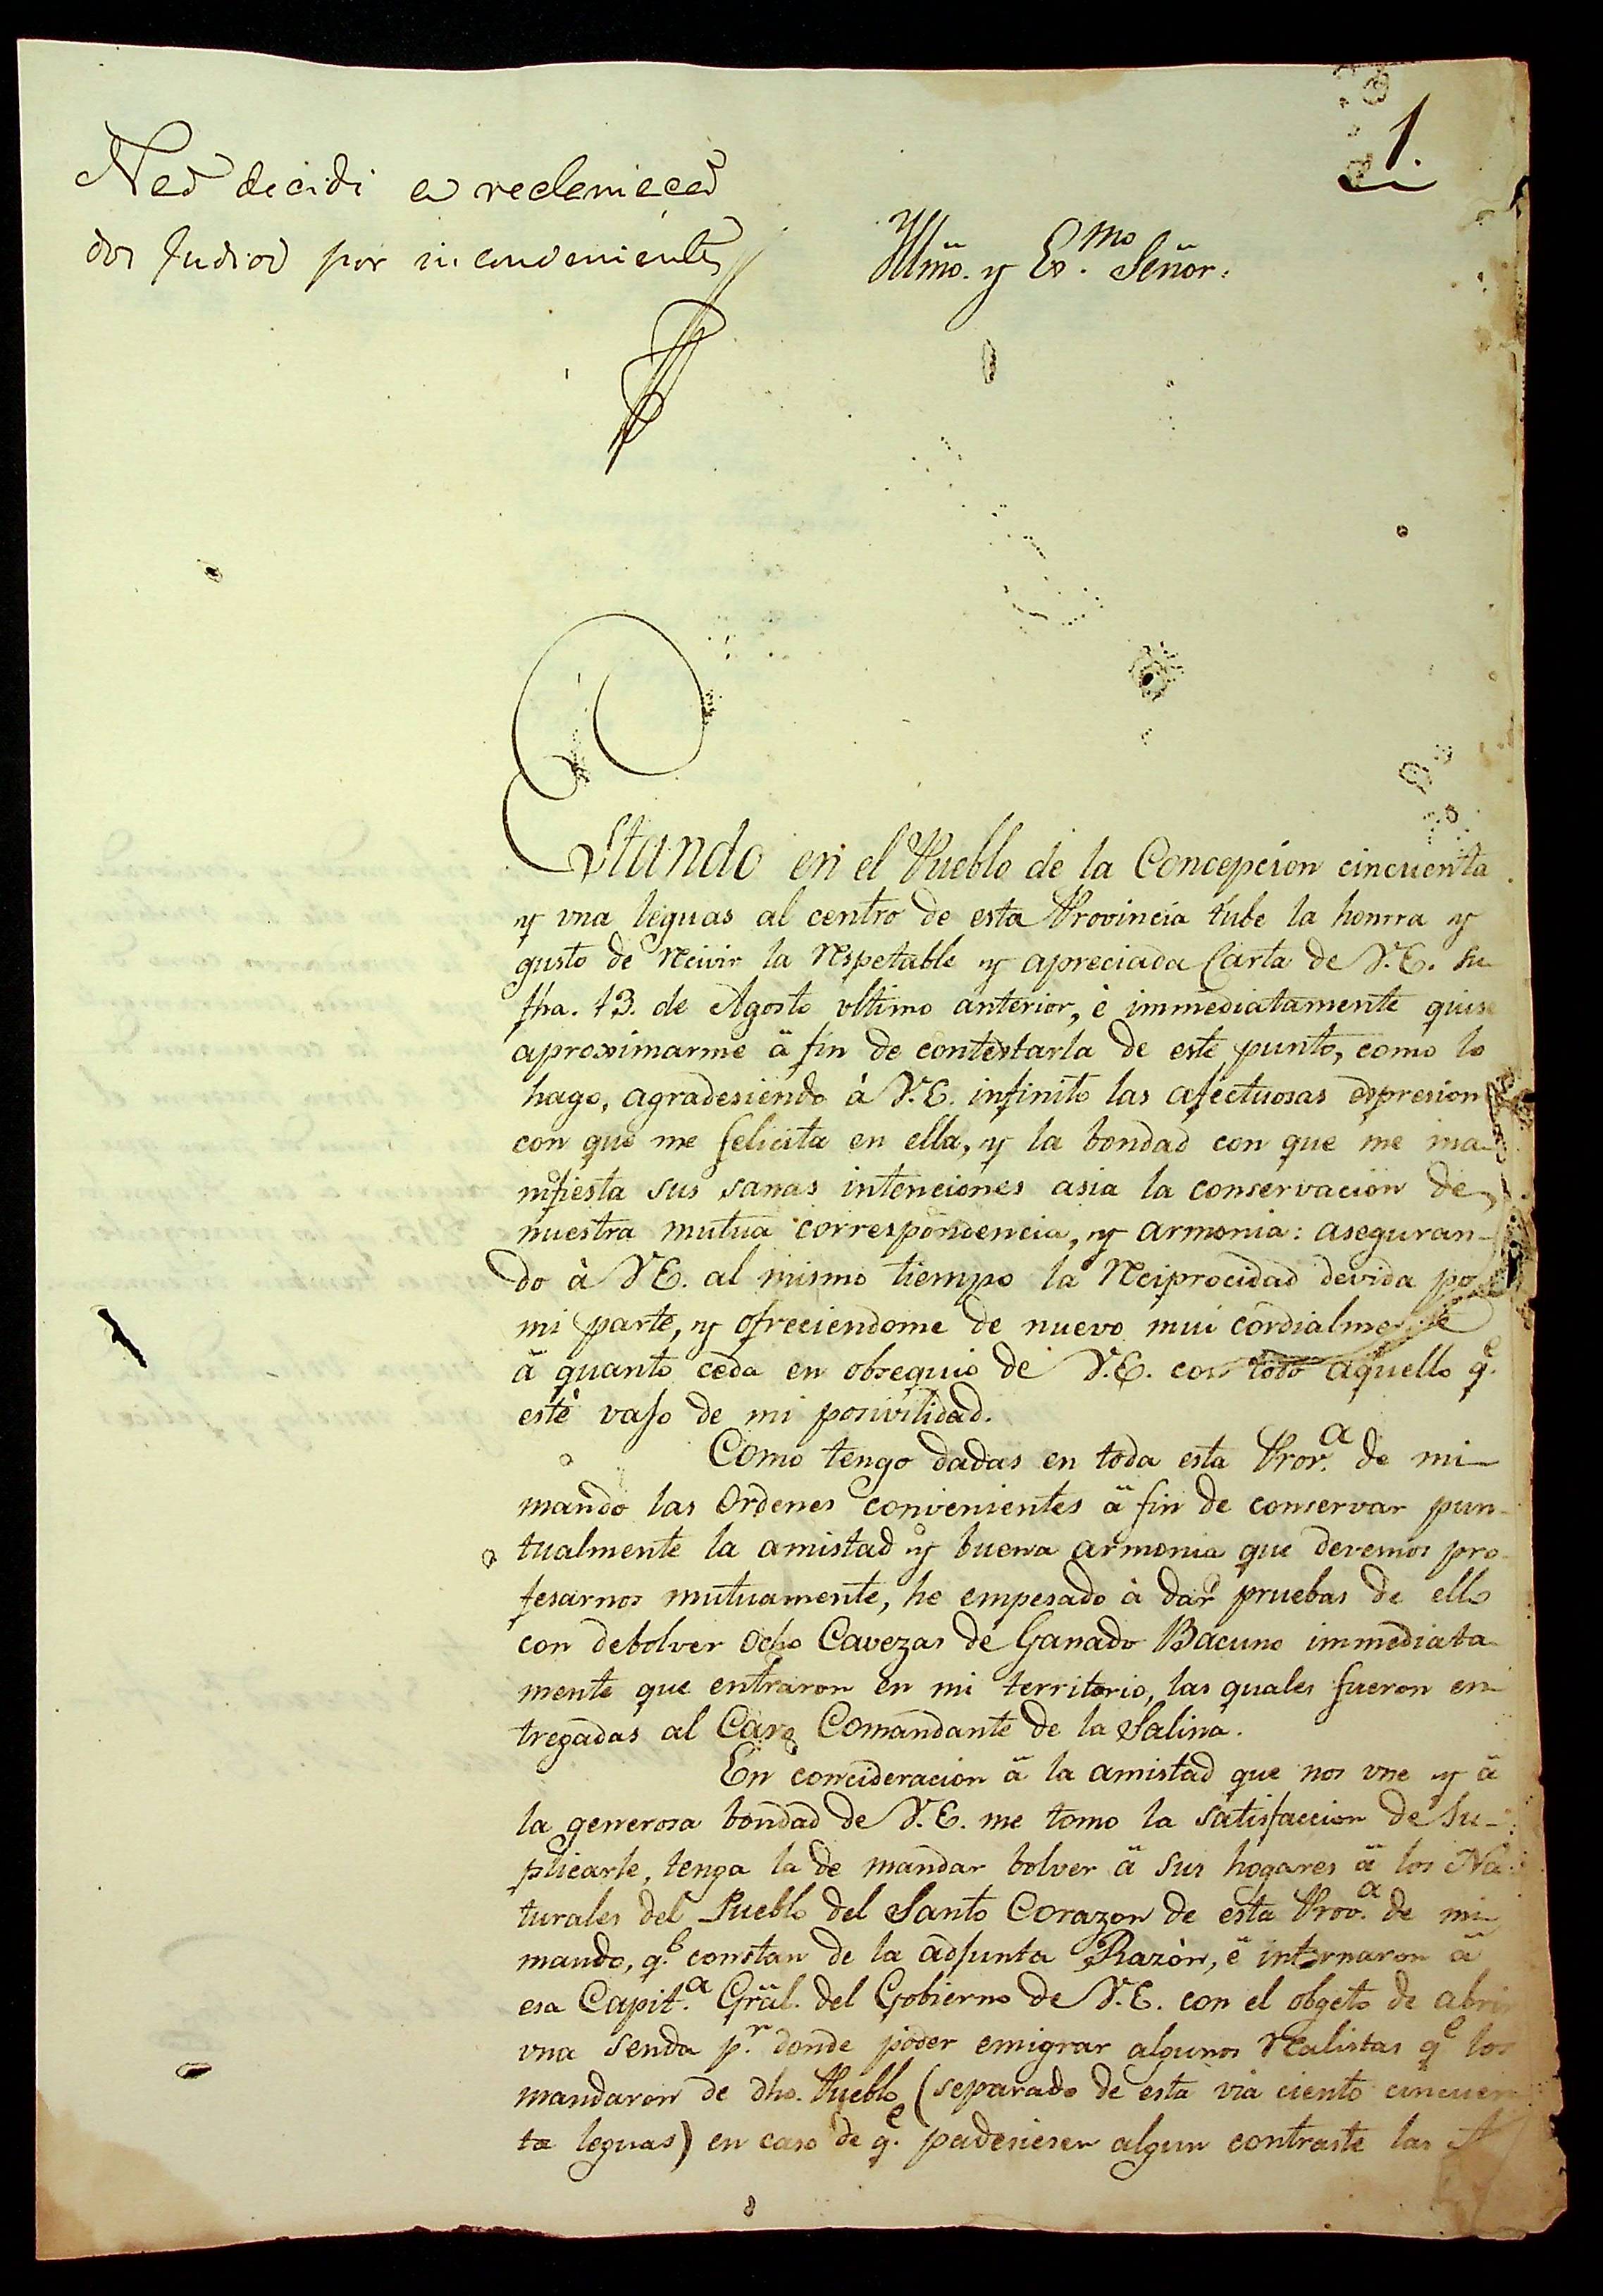 decidi a
dos Indios por inconveniente
1.
Illmo. y Exmo. Señor.
Estando en el Pueblo de la Concepcion cincuenta
y una leguas al centro de esta Provincia tube la honrra y
gusto de Recivir la Respetable y apreciada Carta de V.E. su
fha. 13. de Agosto ultimo anterior, è immediatamente quise
aproximarme ä fin de contextarla de este punto, como lo
hago, agradesiendo à V.E. infinito las afectuosas espresion
con que me felicita en ella, y la bondad con que me ma-
nifiesta sus sanas intenciones asia la conservacion de
nuestra mutua correspondencia, y armonia: aseguran-
do à V.E. al mismo tiempo la Reciprocidad devida po
mi parte, y ofreciendome de nuevo mui cordialmente
ä quanto ceda en obsequio de V.E. con todo aquello q.e
estè vajo de mi posivilidad.
Como tengo dadas en toda esta Prov.a de mi
mando las Ordenes convenientes ä fin de conservar pun-
tualmente la amistad y buena armonia que devemos pro-
fesarnos mutuamente, he empesado à dar pruebas de ello
con debolver ocho Cavezas de Ganado Bacuno immediata-
mente que entraron en mi territorio, las quales fueron en-
tregadas al Comandante de la Salina.
En concideracion ä la amistad que nos une y ä
la generosa bondad de V.E. me tomo la satisfaccion de su-
plicarle, tenga la de mandar bolver ä sus hogares ä los Na-
turales del Pueblo del Santo Corazon de esta Prov.a de mi
mando, q.e constan de la adjunta Razòn, ë internaron ä
esa Capit.a Gräl. del Gobierno de V.E. con el objeto de abrir
una senda p.r donde poder emigrar algunos Realistas q.e los
mandaron de dho. Pueblo (separado de esta via ciento cincuen
ta leguas) en caso de q.e padesiesen algun contraste las